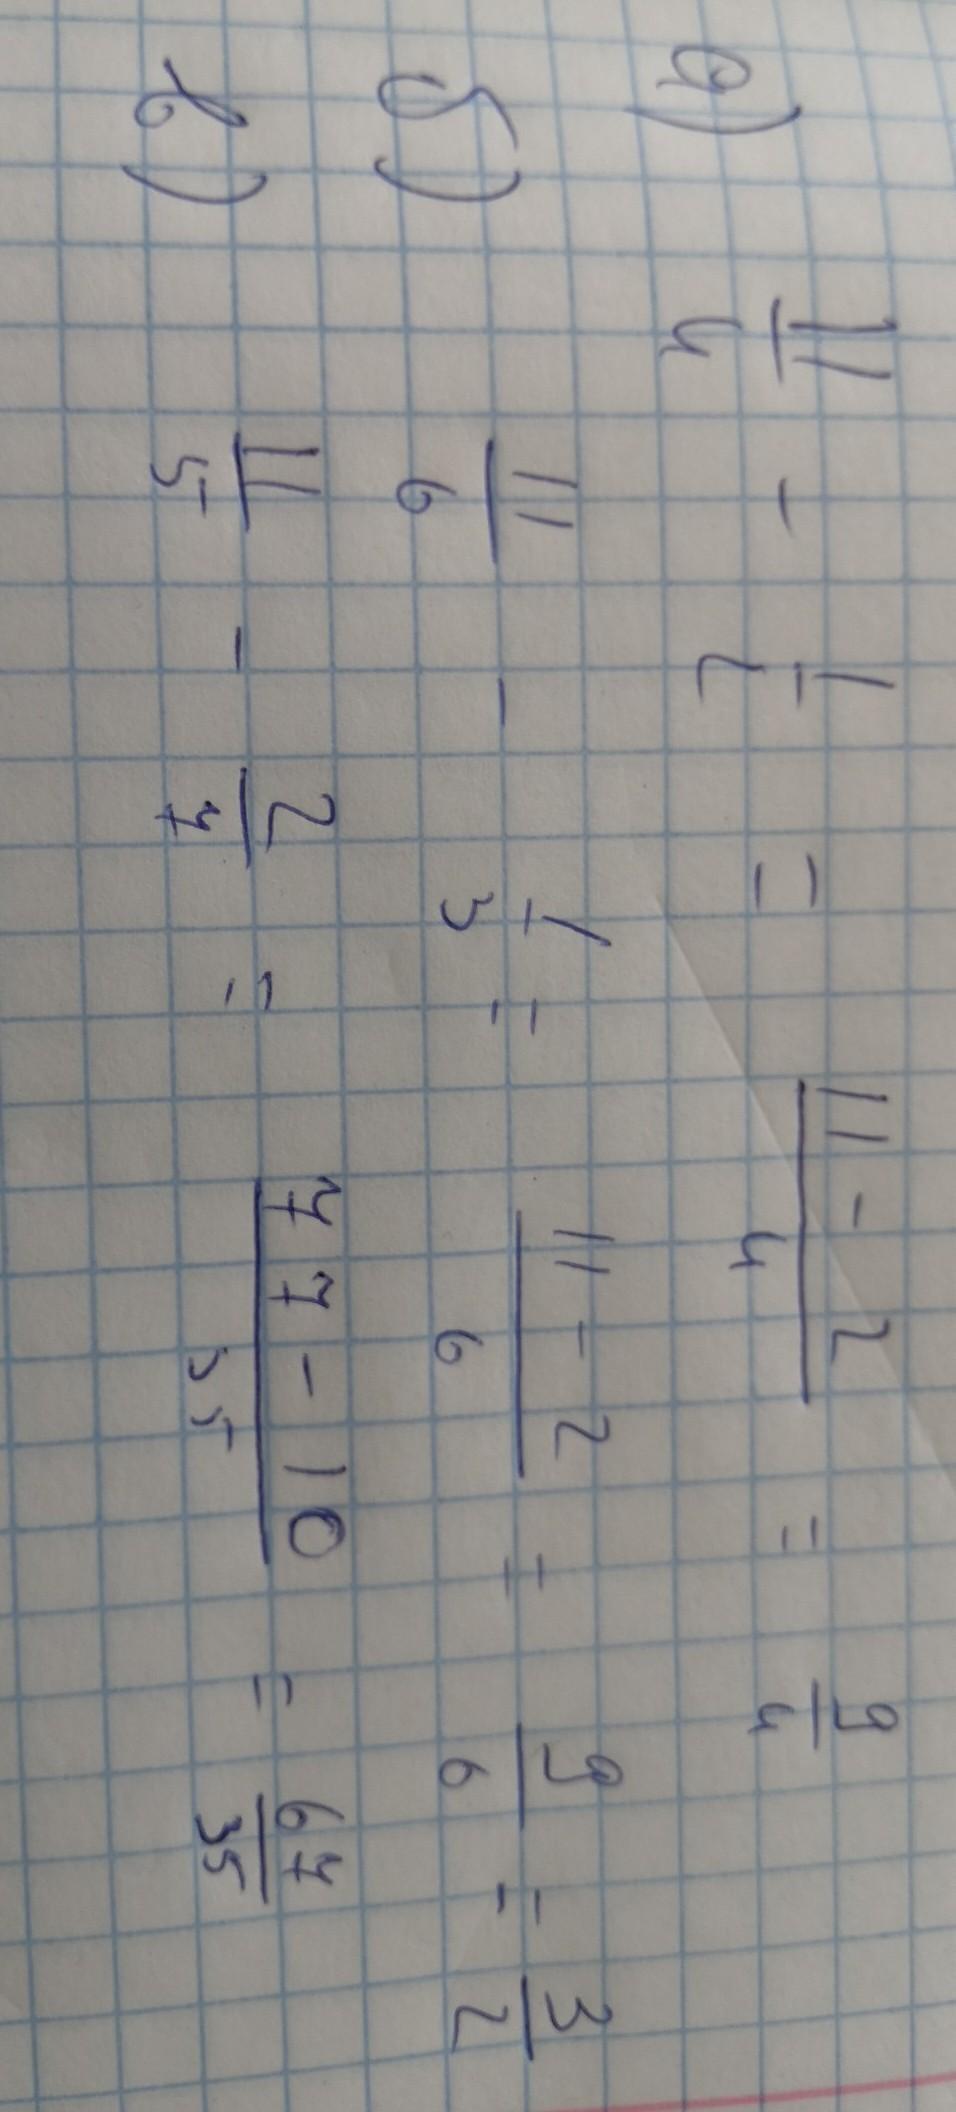 а) 11/4 - 1/2 = (11 - 2)/4 = 9/4
б) 11/6 - 1/3 = (11 - 2)/6 = 9/6 = 3/2
в) 11/5 - 2/7 = (77 - 10)/35 = 67/35